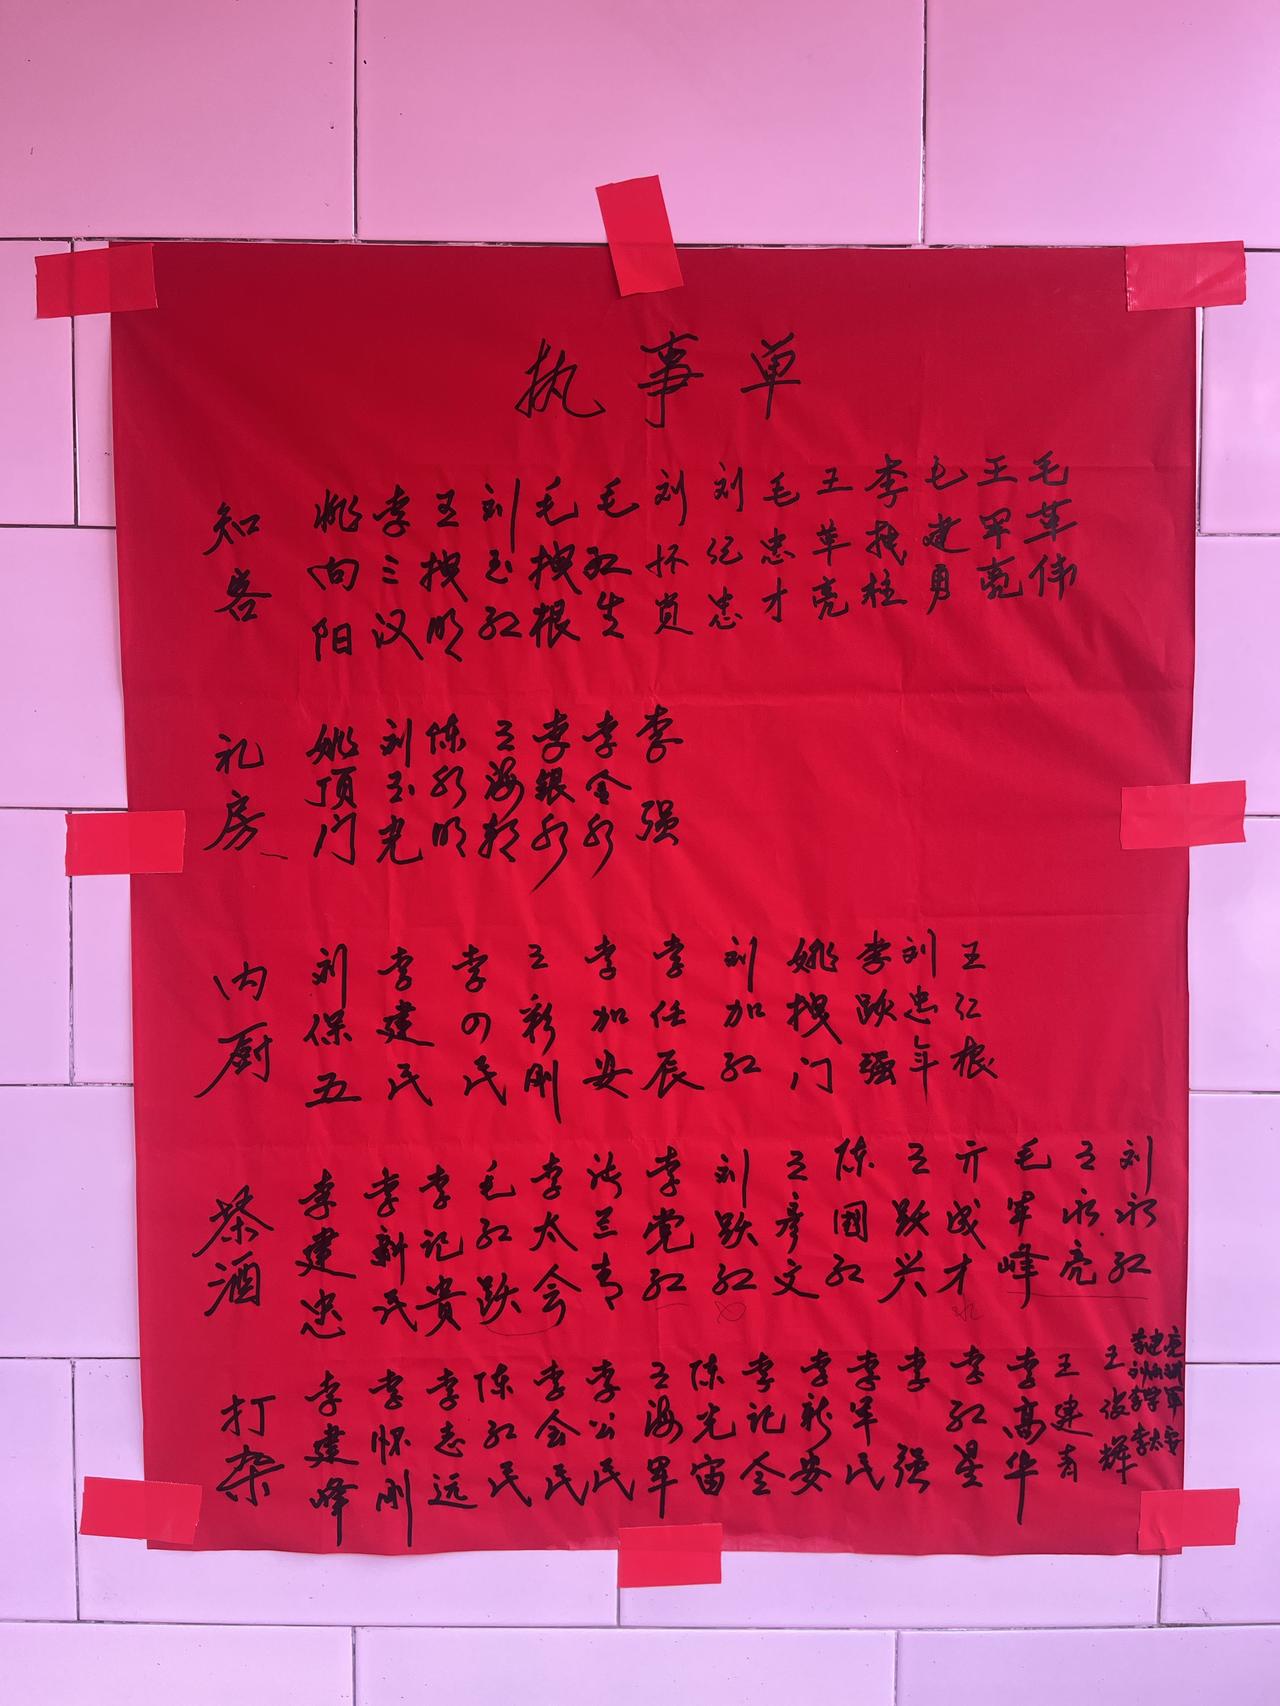 执事单
知客 姚向阳 李三汉 王拽明 刘玉红 毛拽根 毛红生 刘怀贞 刘纪忠 毛忠才 王革亮 李拽柱 毛建勇 王军亮 毛革伟
礼房 姚顶门 刘玉光 陈水明 王海朝 李银水 李金水 李强
内厨 刘保五 李建民 李四民 王新刚 李加安 李任辰 刘加红 姚拽门 李跃强 刘忠年 王仁根
茶酒 李建忠 李新民 李记贵 毛红跃 李太会 李党红 刘跃红 王彦文 陈国红 王跃兴 亓成才 毛军峰 王永亮 刘永红
打杂 李建峰 李怀刚 李志远 陈红民 李会民 李公民 王海军 陈光宙 李记全 李新安 李军民 李强 李红星 李高华 王建青 王俊辉 李太安